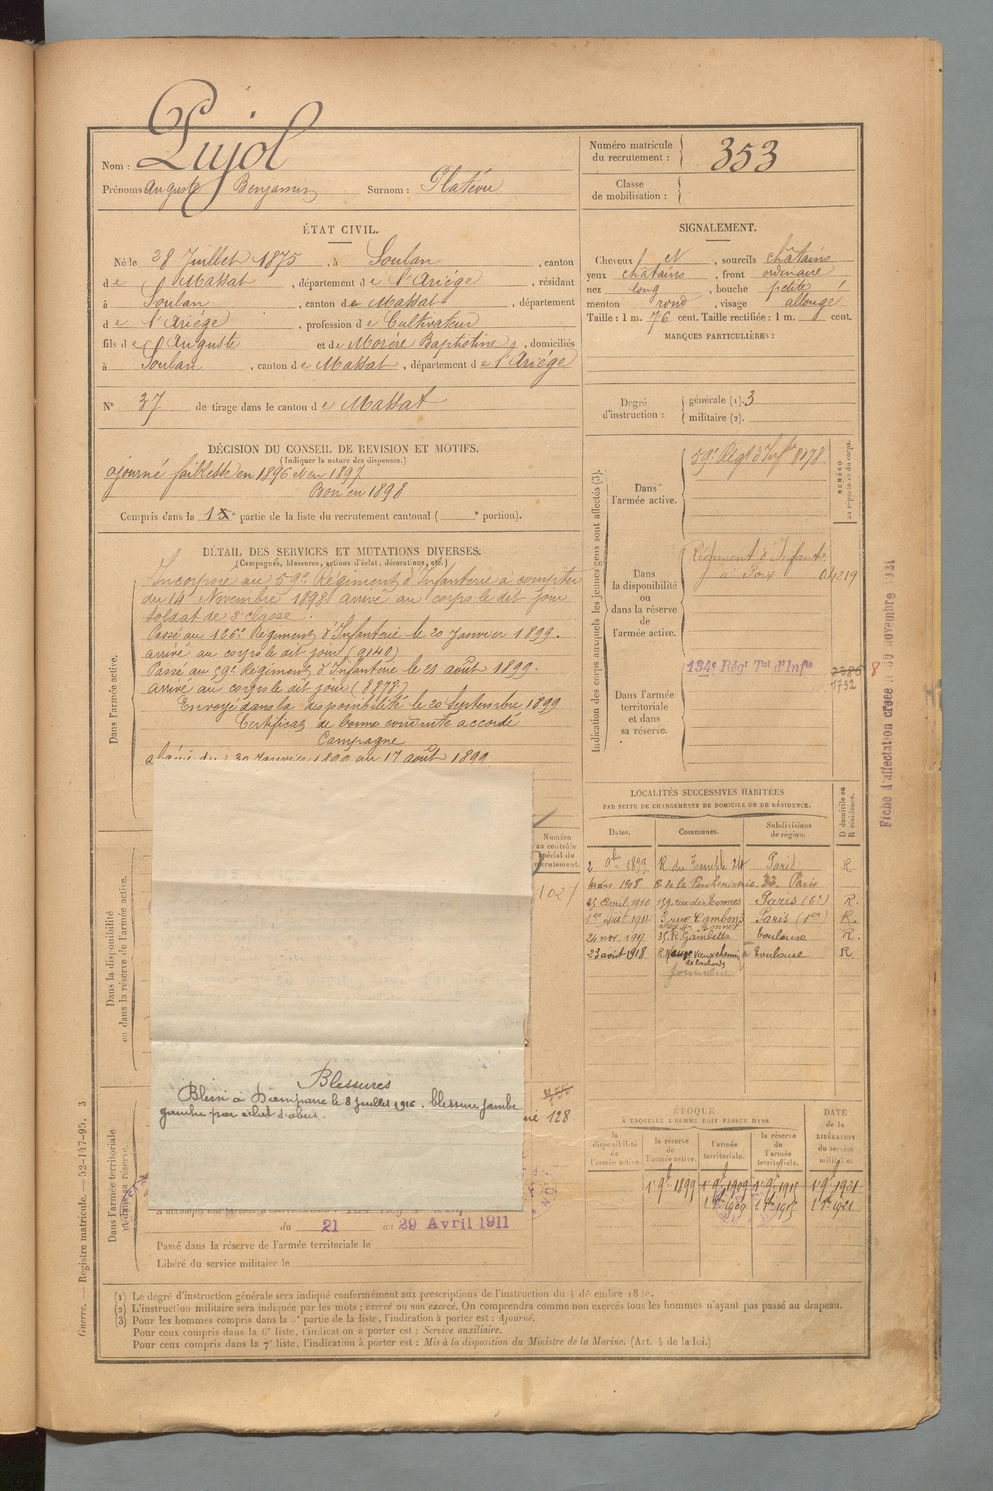 Nom : Pujol
Prénoms Auguste Benjamin Surnom : Platéou
Numéro matricule
du recrutement : 353
Classe
de mobilisation :
ÉTAT CIVIL.
Né le 28 Juillet 1875, à Soulan, canton
de Massat, département de l'Ariége, résidant
à Soulan, canton de Massat, département
de l'Ariége, profession de Cultivateur
fils de Auguste et de Morère Baptistine, domiciliés
à Soulan, canton de Massat, département de l'Ariége
N° 37 de tirage dans le canton de Massat
SIGNALEMENT.
Cheveux et, sourcils châtains
yeux châtains, front ordinaire
nez long, bouche petite
menton rond, visage allongé
Taille : 1 m. 76 cent. Taille rectifiée : 1 m. cent.
MARQUES PARTICULIÈRES :
Degré
d'instruction :
générale (1). 3
militaire (2).
DÉCISION DU CONSEIL DE REVISION ET MOTIFS.
(Indiquer la nature des dispenses.)
ajourné faiblesse en 1896 et en 1897
Bon en 1898
Compris dans la 1e partie de la liste du recrutement cantonal ( e portion).
DÉTAIL DES SERVICES ET MUTATIONS DIVERSES.
(Campagnes, blessures, actions d'éclat, décorations, etc.)
Dans l'armée active.
Incorporé au 59e Régiment d'Infanterie à compter
du 14 Novembre 1898 arrivé au corps le dit jour
soldat de 2e classe.
Passé au 126e Régiment d'Infanterie le 20 Janvier 1899.
arrivé au corps le dit jour (9140)
Passé au 59e Régiment d'Infanterie le 21 août 1899.
arrivé au corps le dit jour (8178)
Envoyé dans la disponibilité le 20 septembre 1899
Certificat de bonne conduite accordé
Campagne
1899 au 17 août 1899
Indication des corps auxquels les jeunes gens sont affectés (3).
Dans
l'armée active.
59e Régt d'Infrie 8178
NUMÉRO
au répertoire du corps.
Dans
la disponibilité
ou
dans la réserve
de
l'armée active.
Régiment d'Infantie
à Foix 04219
Dans l'armée
territoriale
et dans
sa réserve.
134e Régt Tal d'Infie
1732
8
Fiche d'affectation créée le 30 novembre 1921
LOCALITÉS SUCCESSIVES HABITÉES
PAR SUITE DE CHANGEMENTS DE DOMICILE OU DE RÉSIDENCE.
Dates. Communes. Subdivisions de région. D domicile ou R résidence.
2 8bre 1899 R. du Temple 24 Paris R
mars 1908 R. de la Parcheminerie 33 Paris
25 avril 1910 139 rue de Rennes Paris (6e) R.
1er août 1912 3 rue Cambon Paris (1er) R.
24 nov. 1917 35 R. Gambetta Toulouse R.
23 août 1918 Toulouse R
Dans la disponibilité
ou dans la réserve de l'armée active.
Numéro
au contrôle
spécial du
recrutement.
1027
Blessures
Blessé à Dompierre le 8 Juillet 1916. blessure jambe
gauche par éclat d'obus.
128
Dans l'armée territoriale
et dans sa réserve.
du 21 au 29 Avril 1911
Passé dans la réserve de l'armée territoriale le
Libéré du service militaire le
ÉPOQUE
À LAQUELLE L'HOMME DOIT PASSER DANS
la disponibilité de l'armée active. la réserve de l'armée active. l'armée territoriale. la réserve de l'armée territoriale.
DATE de la LIBÉRATION du service militaire.
1 9bre 1899 1 9bre 1909 1 9bre 1915 1 9bre 1921
1 8bre 1909 1 8bre 1915 1 8bre 1921
Guerre. — Registre matricule. — 52-147-95. 3
(1) Le degré d'instruction générale sera indiqué conformément aux prescriptions de l'instruction du 4 décembre 1889.
(2) L'instruction militaire sera indiquée par les mots : exercé ou non exercé. On comprendra comme non exercés tous les hommes n'ayant pas passé au drapeau.
(3) Pour les hommes compris dans la 5e partie de la liste, l'indication à porter est : Ajourné.
Pour ceux compris dans la 6e liste, l'indication à porter est : Service auxiliaire.
Pour ceux compris dans la 7e liste, l'indication à porter est : Mis à la disposition du Ministre de la Marine. (Art. 4 de la loi.)